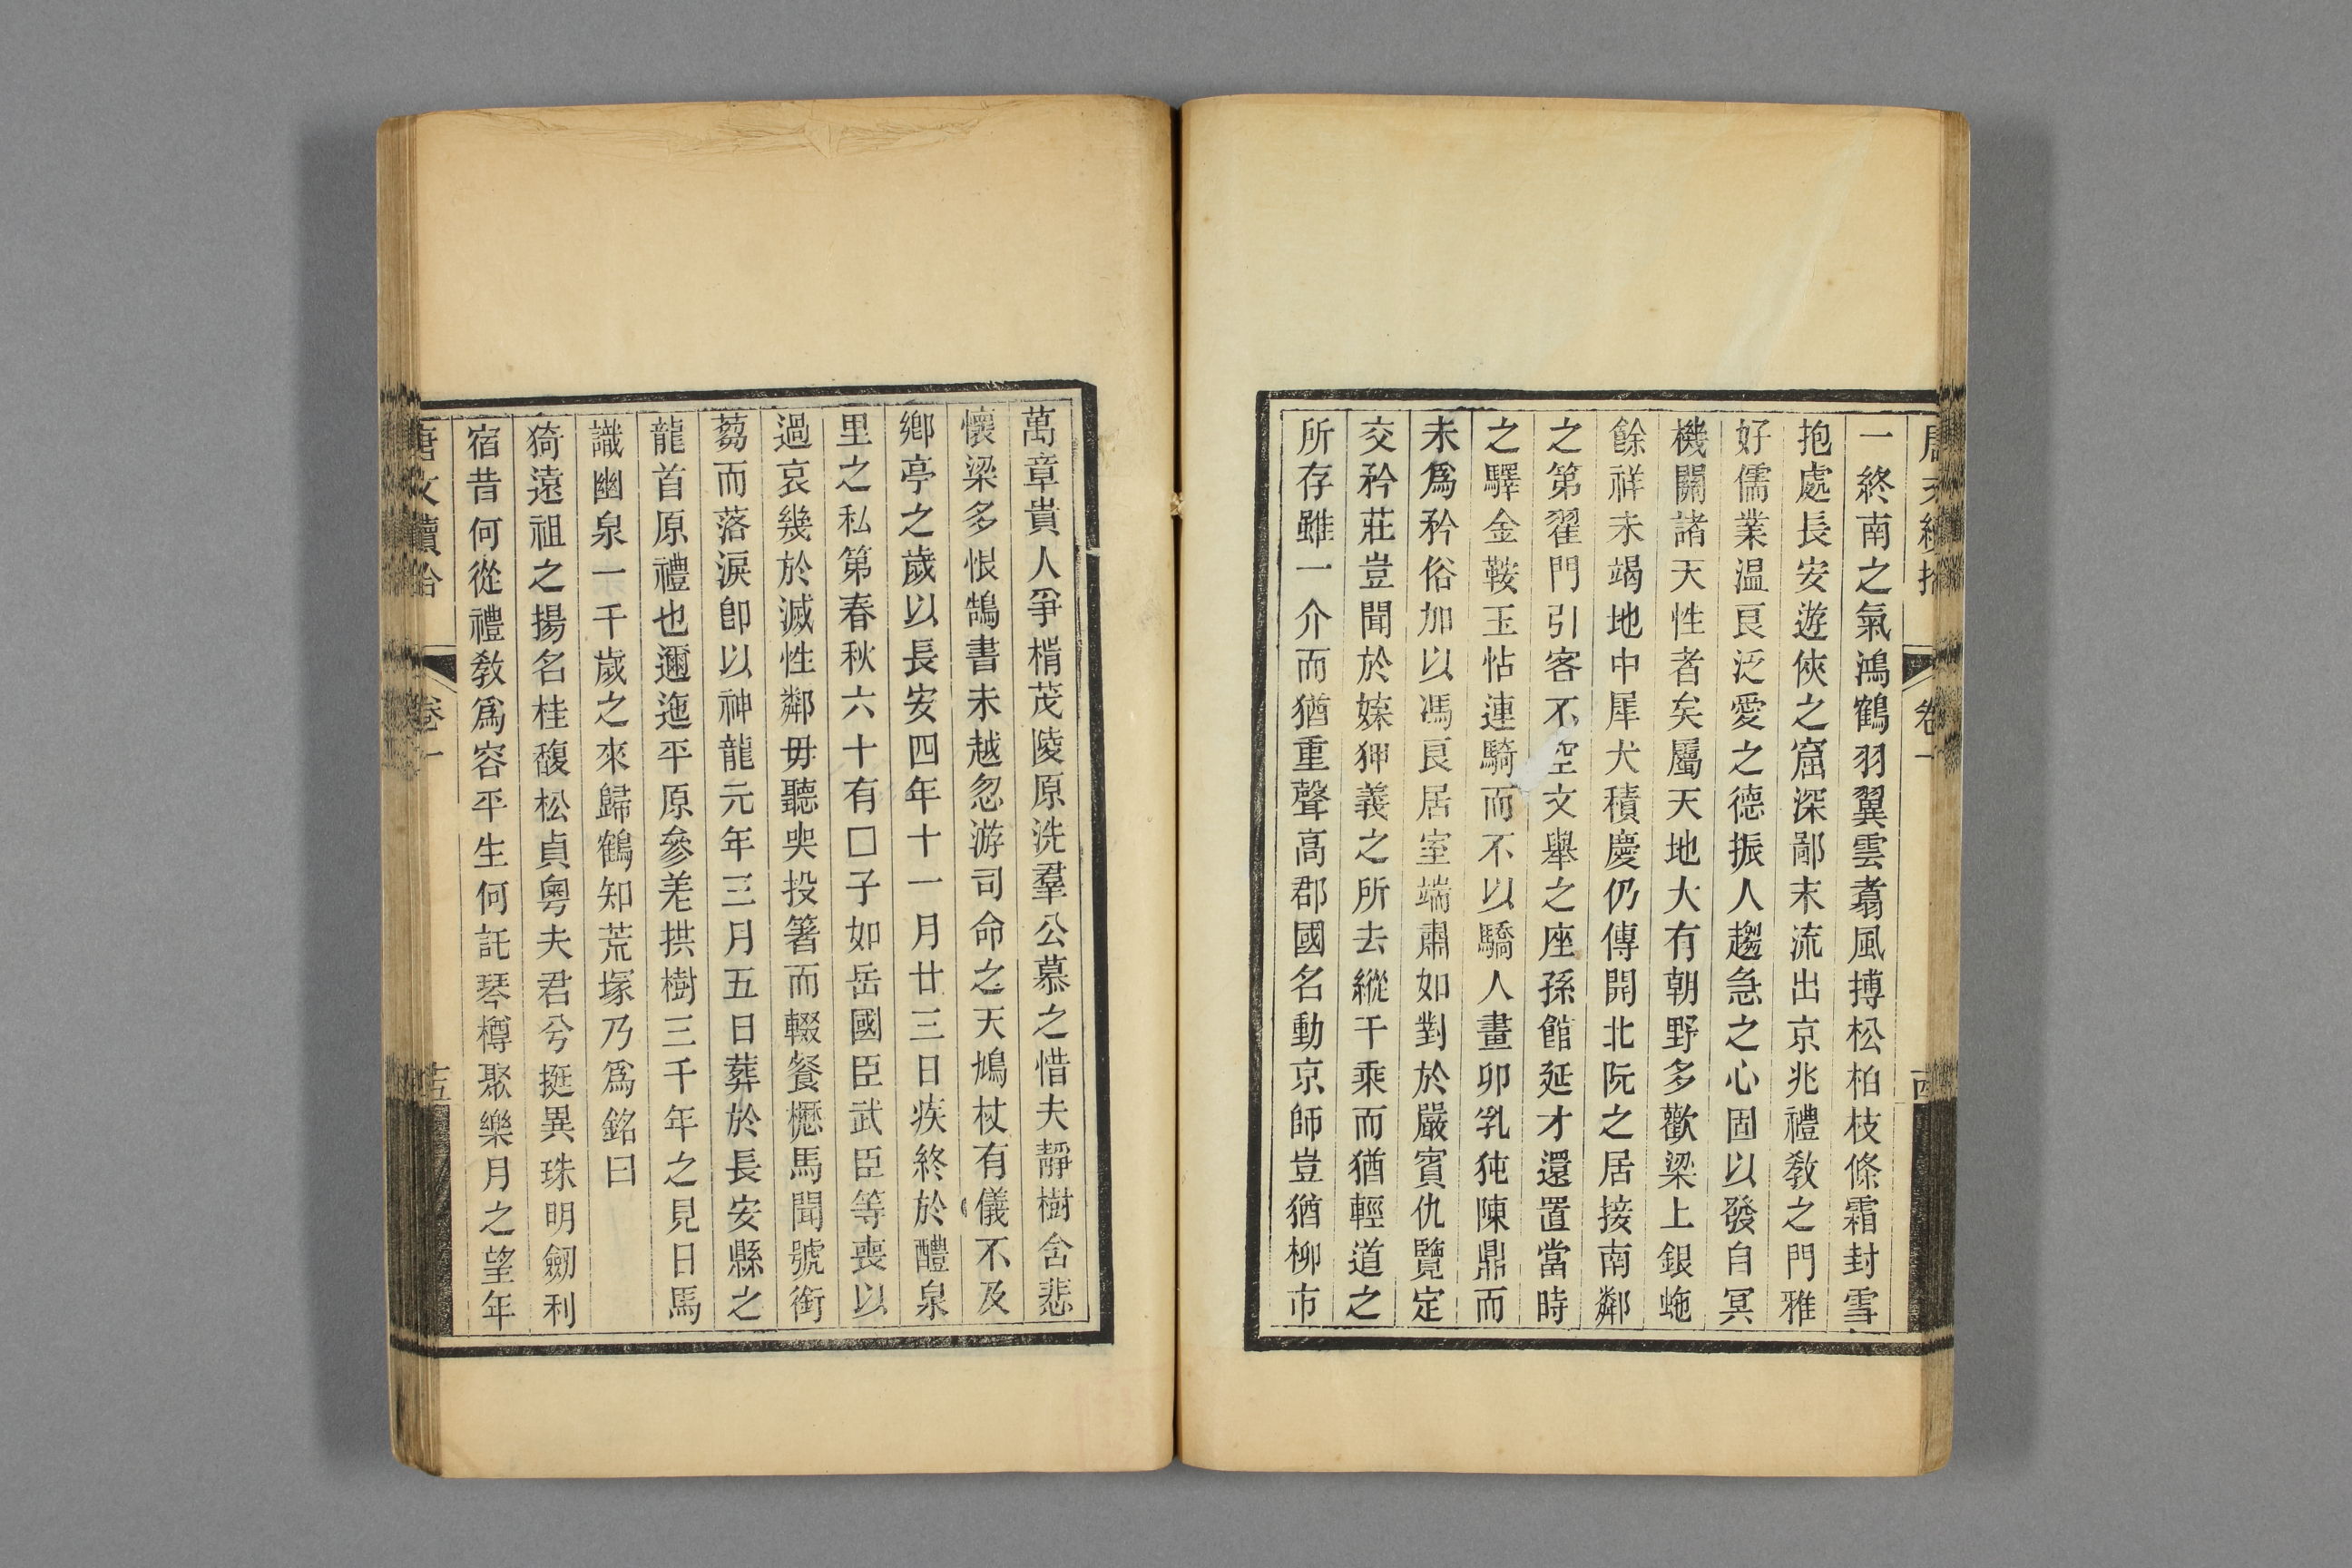 唐文續拾 卷一 古
一終南之氣鴻鶴羽翼雲翥風搏松柏枝條霜封雪
抱處長安遊俠之窟深鄙末流出京兆禮教之門雅
好儒業温良泛愛之德振人趨急之心固以發自冥
機關諸天性者矣屬天地大有朝野多歡梁上銀虵
餘祥未竭地中犀犬積慶仍傳開北阮之居接南鄰
之第翟門引客不空文舉之座孫館延才還置當時
之驛金鞍玉怗連騎而不以驕人畫卯乳㹠陳鼎而
未爲矜俗加以馮良居室端肅如對於嚴賓仇覽定
交矜莊豈聞於媟狎義之所去縱千乘而猶輕道之
所存雖一介而猶重聲高郡國名動京師豈猶柳市
萬章貴人爭棤茂陵原洗羣公慕之惜夫靜樹含悲
懷梁多恨鵠書未越忽游司命之天鳩杖有儀不及
鄉亭之歲以長安四年十一月廿三日疾終於醴泉
里之私第春秋六十有□子如岳國臣武臣等喪以
過哀幾於滅性鄰毋聽哭投箸而輟餐櫪馬聞號銜
芻而落淚卽以神龍元年三月五日葬於長安縣之
龍首原禮也邐迤平原參差拱樹三千年之見日馬
識幽泉一千歲之來歸鶴知荒塚乃爲銘曰
猗遠祖之揚名桂馥松貞粵夫君兮挺異珠明劒利
宿昔何從禮教爲容平生何託琴樽聚樂月之望年
唐文續拾 卷一 十五